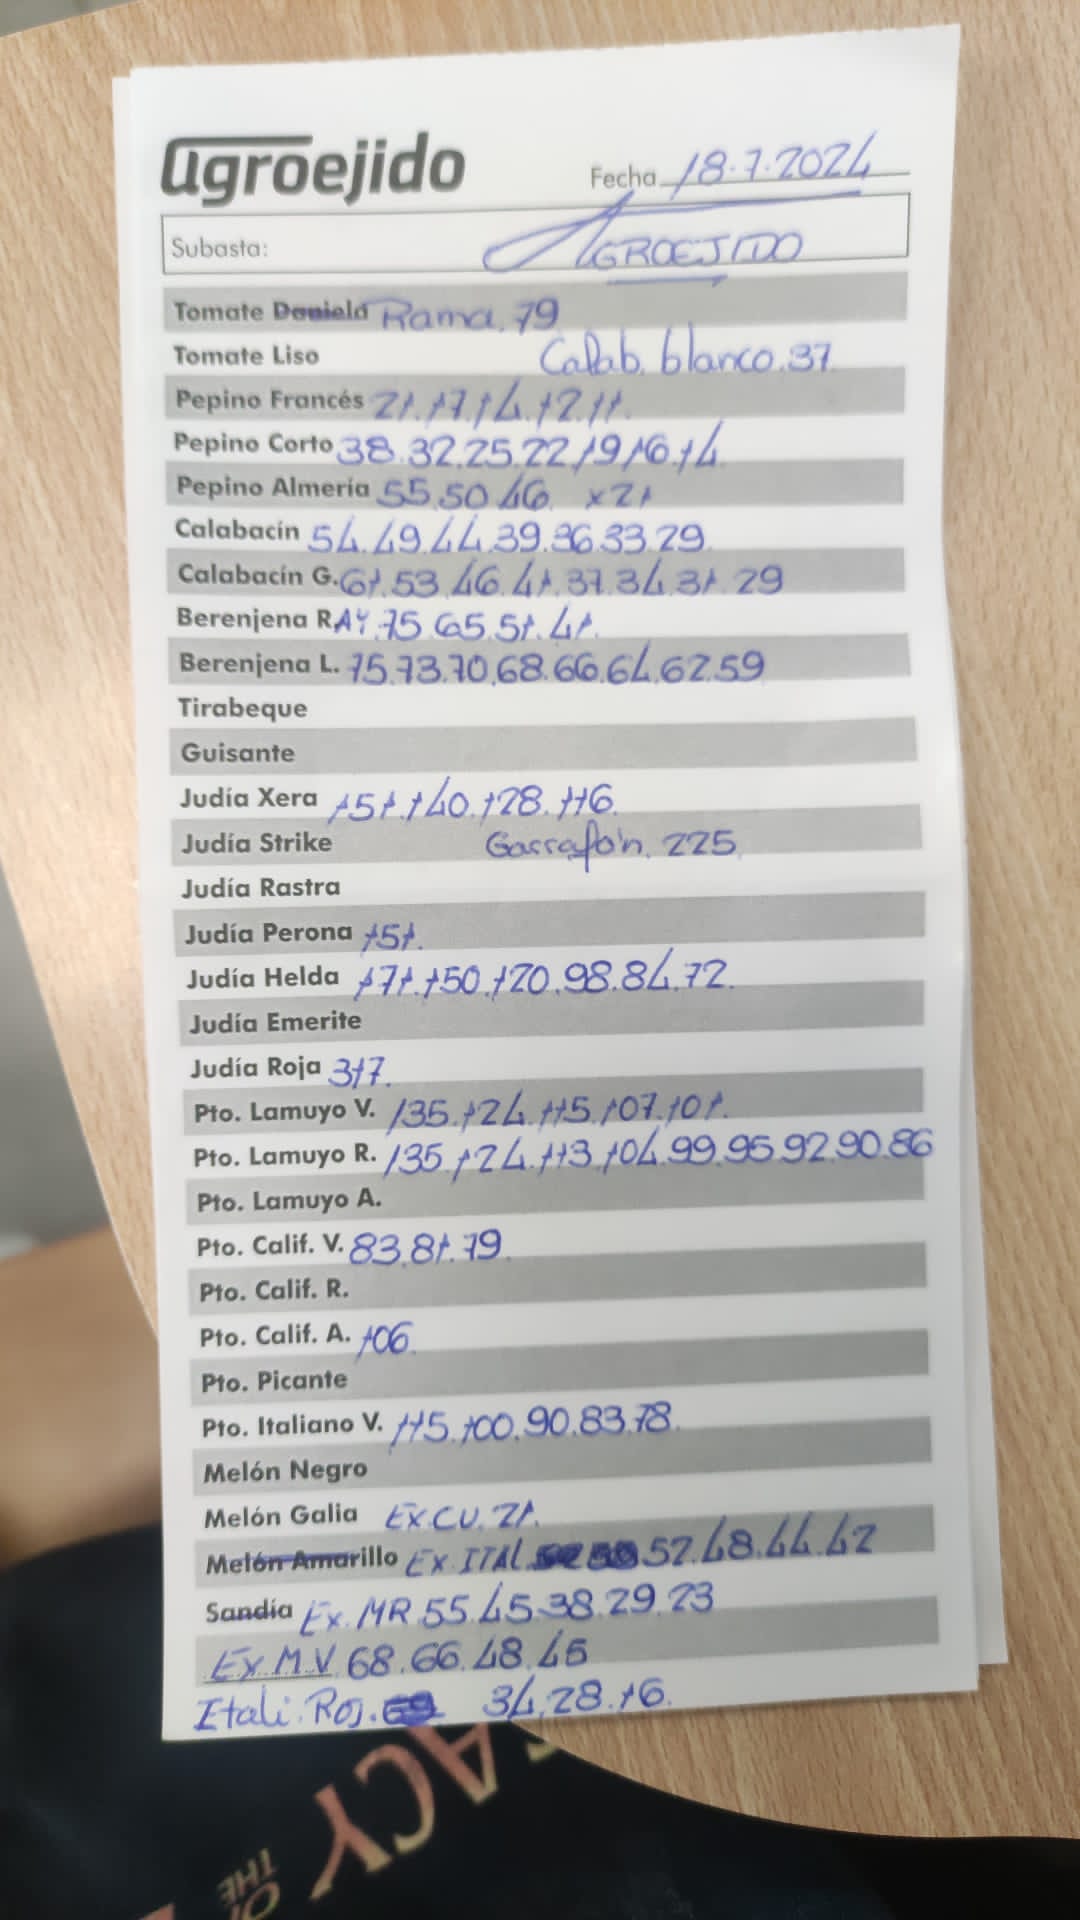 agroejido
Fecha 18.7.2024
Subasta: AGROEJIDO
Tomate Daniela Rama. 79
Tomate Liso Calab. blanco. 37
Pepino Francés 21.17.14.12.11.
Pepino Corto 38.32.25.22.19.16.14
Pepino Almería 55.50.46. x21
Calabacín 54.49.44.39.36.33.29.
Calabacín G. 61.53.46.41.37.34.31.29
Berenjena R. AY.75.65.51.41.
Berenjena L. 75.73.70.68.66.64.62.59
Tirabeque
Guisante
Judía Xera 151.140.128.116.
Judía Strike Garrafón. 225.
Judía Rastra
Judía Perona 151.
Judía Helda 171.150.120.98.84.72.
Judía Emerite
Judía Roja 317.
Pto. Lamuyo V. 135.124.115.107.101.
Pto. Lamuyo R. 135.124.113.104.99.95.92.90.86
Pto. Lamuyo A.
Pto. Calif. V. 83.81.79.
Pto. Calif. R.
Pto. Calif. A. 106.
Pto. Picante
Pto. Italiano V. 115.100.90.83.78.
Melón Negro
Melón Galia EX.CU. 21.
Melón Amarillo EX.ITAL. 52.48.44.42
Sandía Ex.MR.55.45.38.29.23
Ex.M.V. 68.66.48.45
Itali. Roj. 34.28.16.
ACY
OF
THE